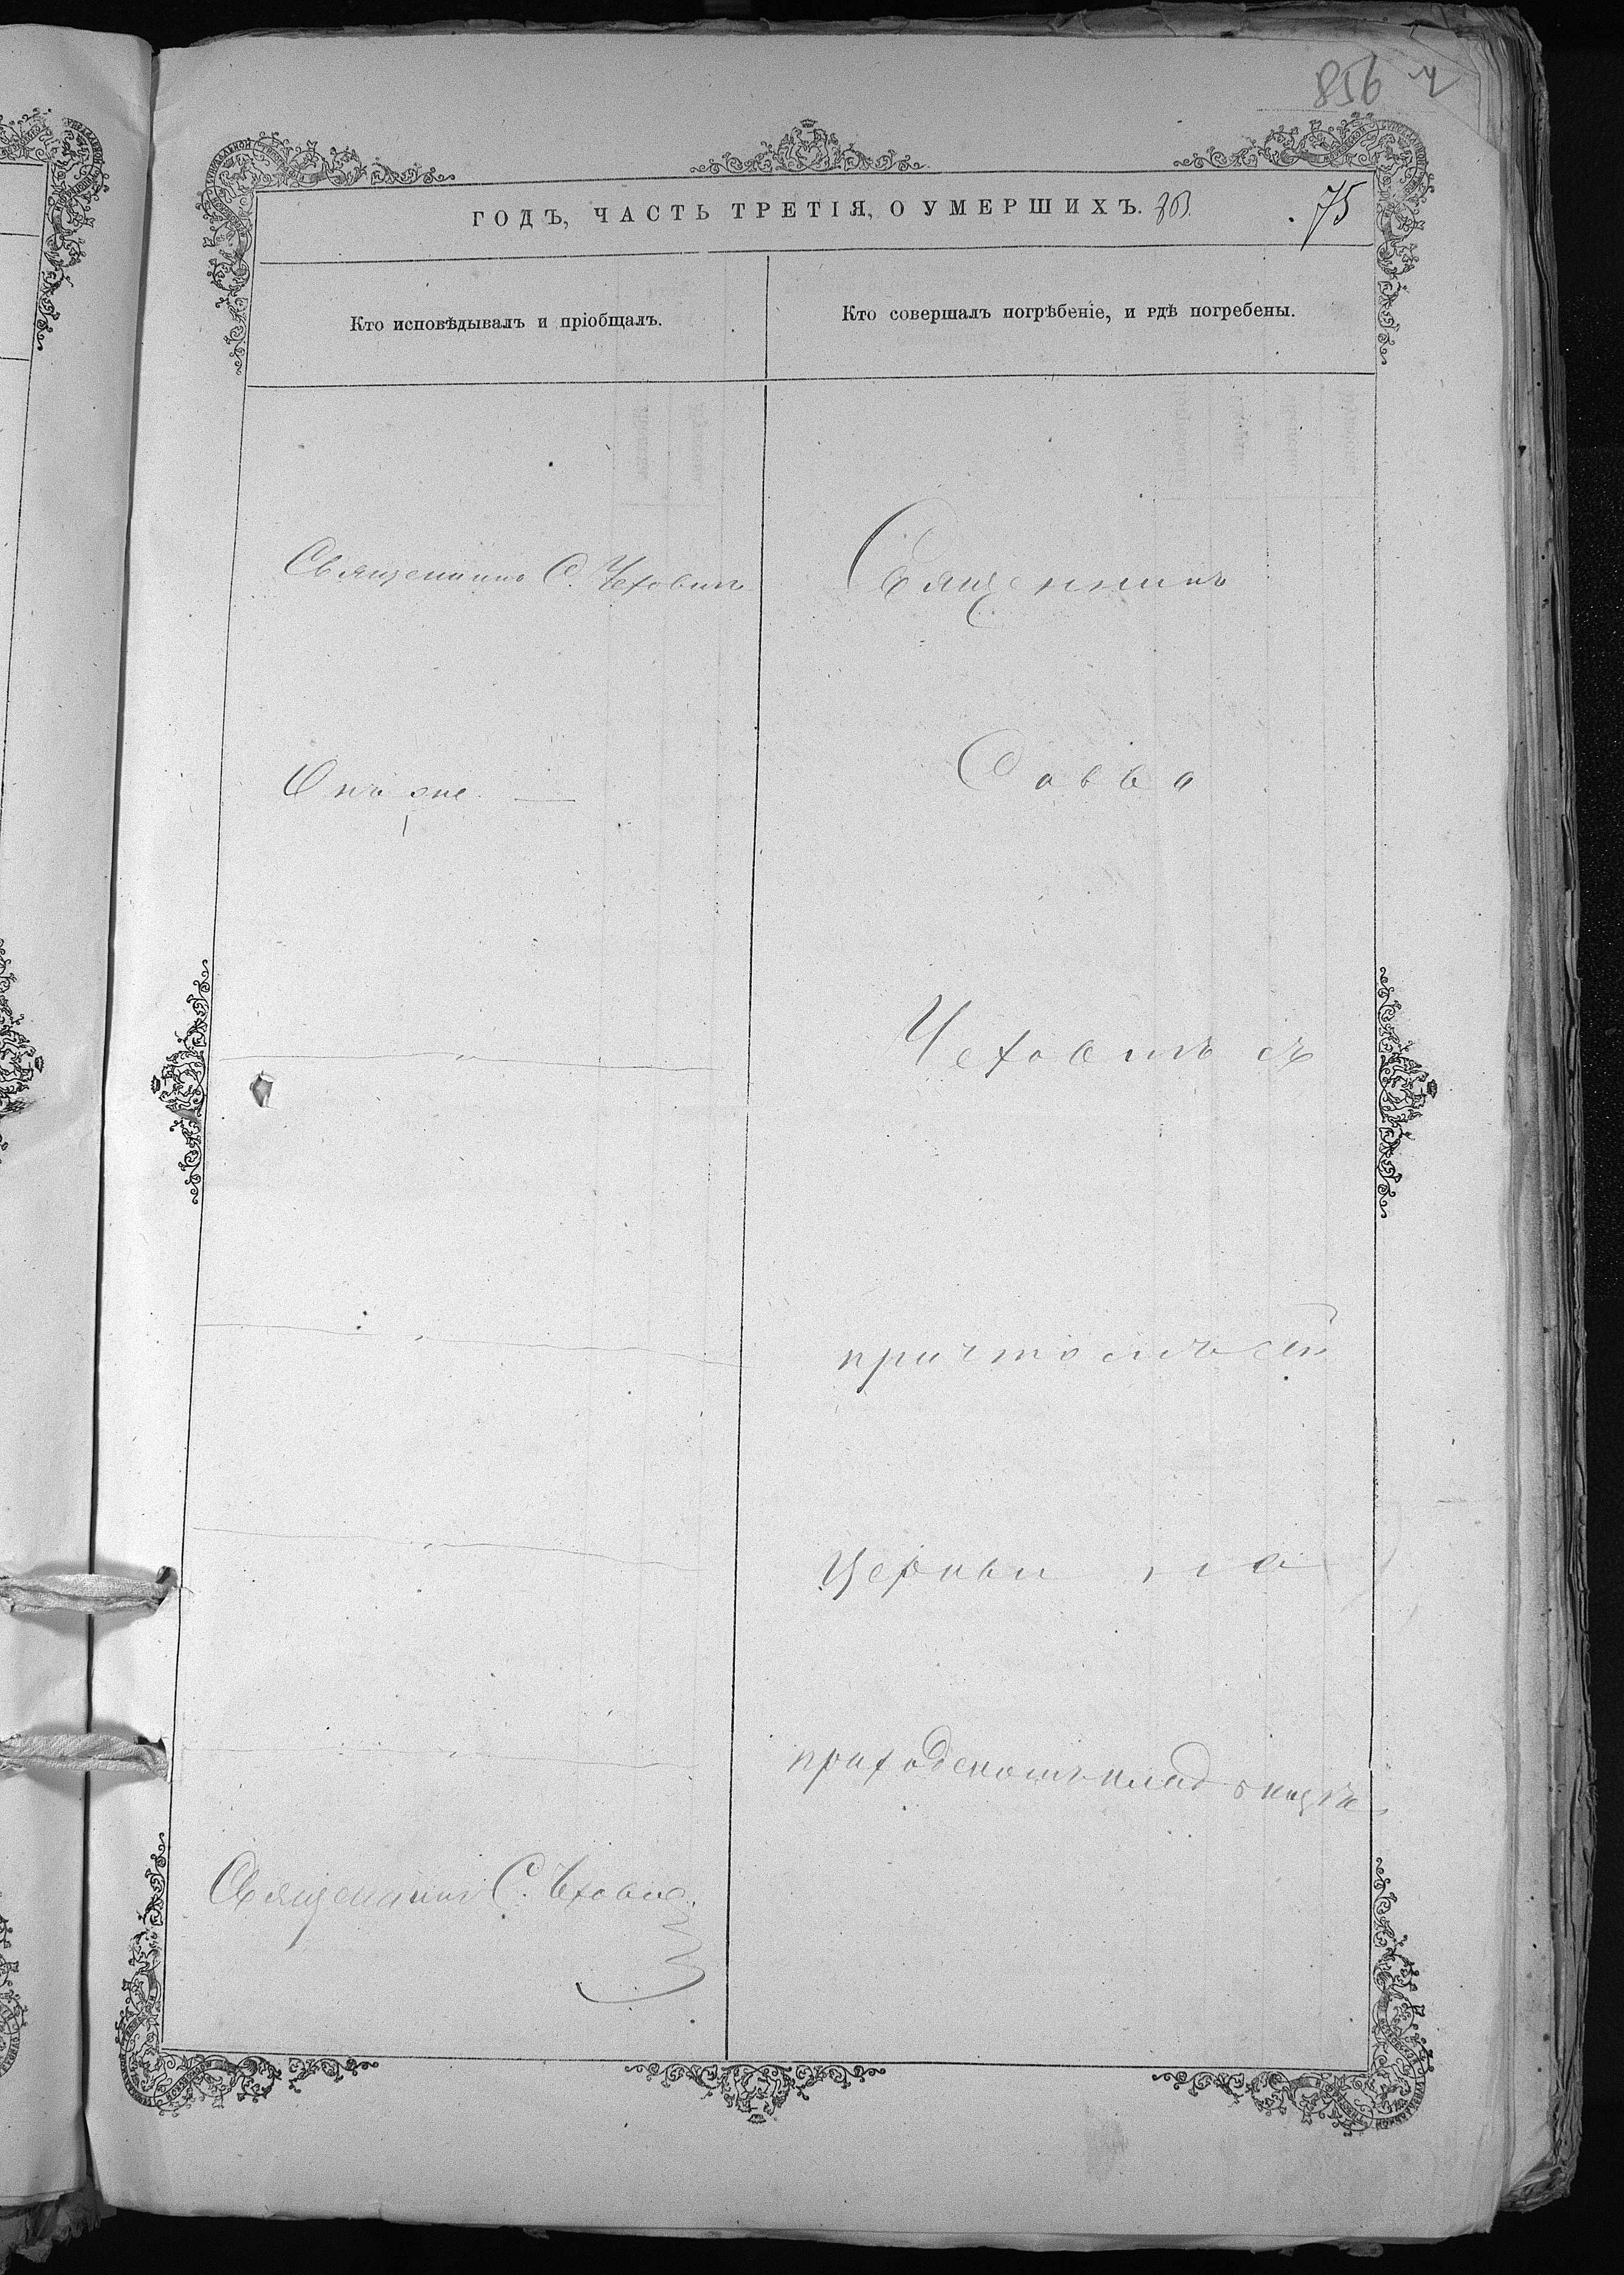 856
ГОДЪ, ЧАСТЬ ТРЕТІЯ, О УМЕРШИХЪ.
75
Кто исповѣдывалъ и пріобщалъ.
Кто совершалъ погрѣбеніе, и гдѣ погребены.
Священникъ С. Чеховичъ
Онъ же
Священникъ С. Чеховичъ
Священникъ
Савва
Чеховичъ съ
причтомъ сей
церкви на
приходскомъ кладбищѣ